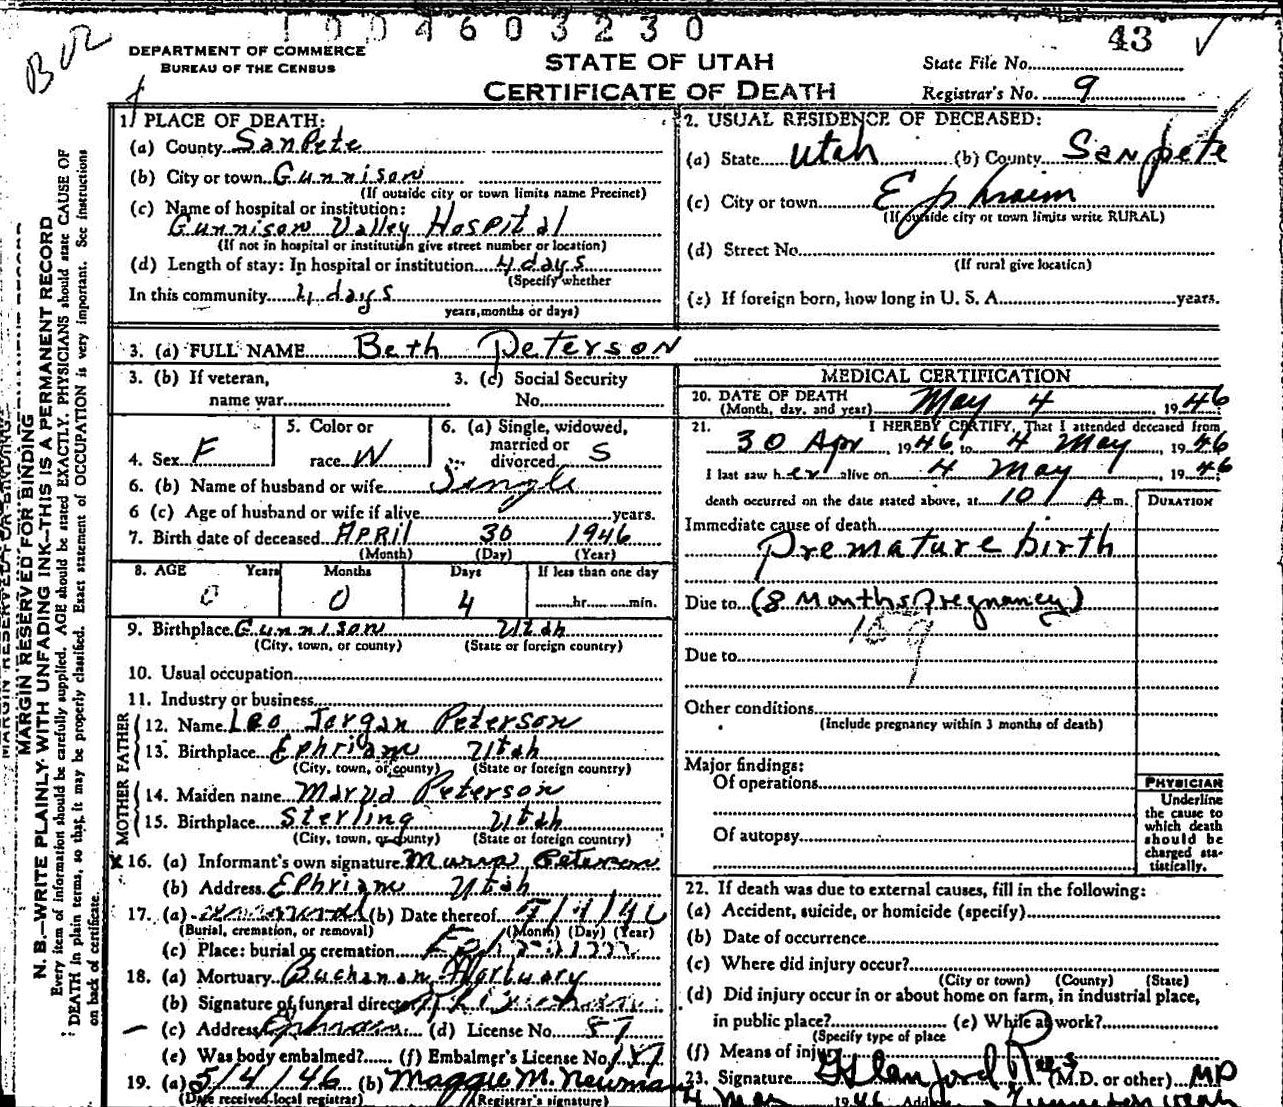 1004603230
BVR
43
DEPARTMENT OF COMMERCE
BUREAU OF THE CENSUS
STATE OF UTAH
CERTIFICATE OF DEATH
State File No.
Registrar's No. 9
MARGIN RESERVED FOR BINDING
N. B.—WRITE PLAINLY WITH UNFADING INK—THIS IS A PERMANENT RECORD
Every item of information should be carefully supplied. AGE should be stated EXACTLY. PHYSICIANS should state CAUSE OF
DEATH in plain terms, so that it may be properly classified. Exact statement of OCCUPATION is very important. See instructions
on back of certificate.
1. PLACE OF DEATH:
(a) County SanPete
(b) City or town Gunnison
(If outside city or town limits name Precinct)
(c) Name of hospital or institution:
Gunnison Valley Hospital
(If not in hospital or institution give street number or location)
(d) Length of stay: In hospital or institution 4 days
(Specify whether
In this community 4 days
years, months or days)
2. USUAL RESIDENCE OF DECEASED:
(a) State Utah (b) County Sanpete
(c) City or town Ephraim
(If outside city or town limits write RURAL)
(d) Street No.
(If rural give location)
(e) If foreign born, how long in U. S. A. years.
3. (a) FULL NAME Beth Peterson
3. (b) If veteran,
name war
3. (c) Social Security
No.
4. Sex F
5. Color or
race W
6. (a) Single, widowed,
married or
divorced S
6. (b) Name of husband or wife Single
6 (c) Age of husband or wife if alive years.
7. Birth date of deceased APRIL 30 1946
(Month) (Day) (Year)
8. AGE Years Months Days If less than one day
0 0 4 hr. min.
9. Birthplace Gunnison Utah
(City, town, or county) (State or foreign country)
10. Usual occupation
11. Industry or business
FATHER
12. Name Leo Jorgan Peterson
13. Birthplace Ephriam Utah
(City, town, or county) (State or foreign country)
MOTHER
14. Maiden name Marva Peterson
15. Birthplace Sterling Utah
(City, town, or county) (State or foreign country)
X 16. (a) Informant's own signature Peterson
(b) Address Ephriam Utah
17. (a) (b) Date thereof
(Burial, cremation, or removal) (Month) (Day) (Year)
(c) Place: burial or cremation
18. (a) Mortuary Buchanan Mortuary
(b) Signature of funeral director
(c) Address Ephraim (d) License No. 87
(e) Was body embalmed? (f) Embalmer's License No. 187
19. (a) 5/4/46 (b) Maggie M. Newman
(Date received local registrar) (Registrar's signature)
MEDICAL CERTIFICATION
20. DATE OF DEATH
(Month, day, and year) May 4 1946
21. I HEREBY CERTIFY, That I attended deceased from
30 Apr 1946, to 4 May 1946
I last saw her alive on 4 May 1946
death occurred on the date stated above, at 10 A m.
DURATION
Immediate cause of death
Premature birth
Due to (8 Months Pregnancy)
159
Due to
Other conditions
(Include pregnancy within 3 months of death)
Major findings:
Of operations
Of autopsy
PHYSICIAN
Underline
the cause to
which death
should be
charged sta-
tistically.
22. If death was due to external causes, fill in the following:
(a) Accident, suicide, or homicide (specify)
(b) Date of occurrence
(c) Where did injury occur?
(City or town) (County) (State)
(d) Did injury occur in or about home on farm, in industrial place,
in public place? (e) While at work?
(Specify type of place
(f) Means of injury
23. Signature G Stanford Rees (M.D. or other) MD
4 May 1946